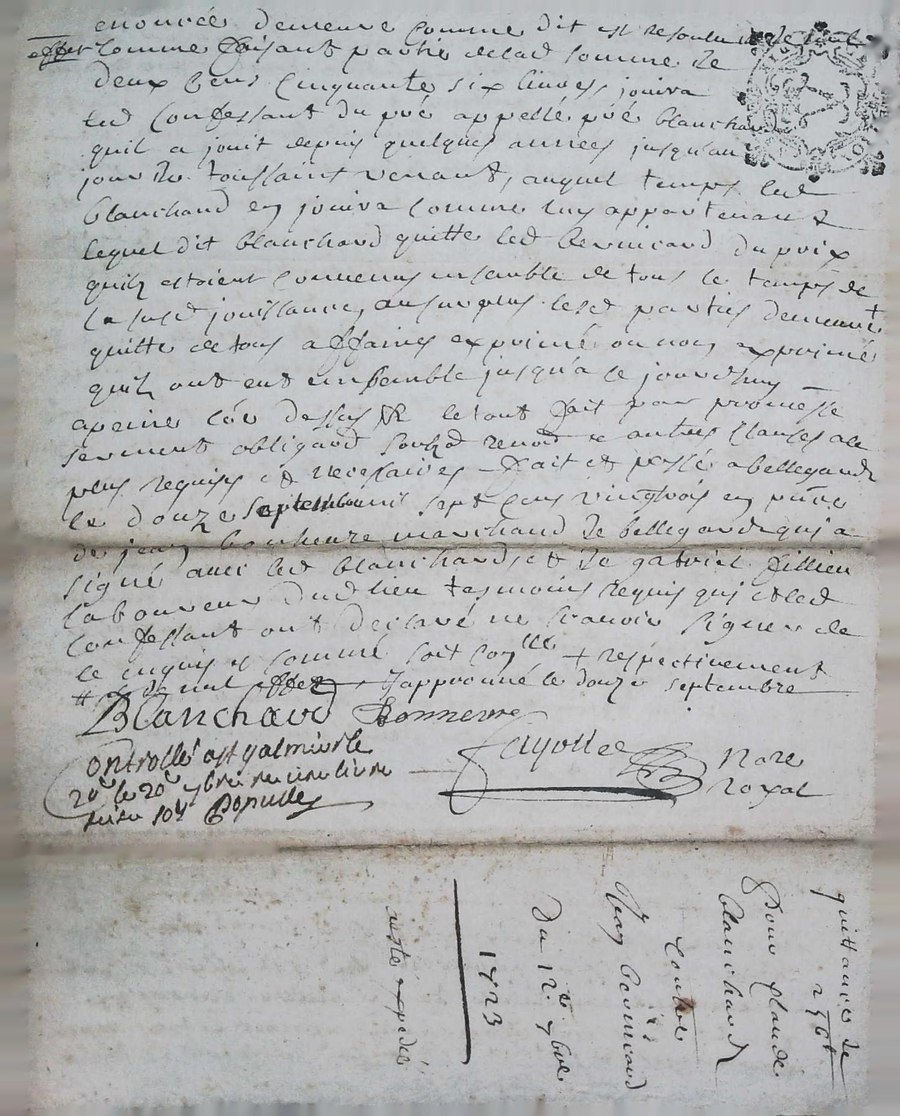 enoncée demeure comme dit est resolu
effet comme faisant partie delad somme de
deux cens cinquante six livres jouira
led confessant du pré appellé pré blanchard
quil a jouit depuis quelques années jusqu'au
jour de toussaint venant, auquel temps led
blanchard en jouira comme luy appartenant
lequel dit blanchard quitte led bernicard du prix
quilz estoient convenus ensemble de tous le temps de
la susd jouissance, au surplus lesd parties demeurent
quitte de tous affaires exprimé ou non exprimé
quilz ont eut ensemble jusqu'a ce jourdhuy
apeine &c le tout fait par promesse
serment obligaon soubz renon & autres clauses ale
plus requises et necessaires fait et passé a bellegarde
le douze septembre mil sept cens vingtrois en pnce
de jean bonneure marchand de bellegarde qui a
signé avec led blanchard et de gabriel fillien
laboureur dud lieu tesmoins requis qui et led
confessant ont declaré ne scavoir signer de
ce enquis et sommé soit conlle + respectivement
approuvé le douze septembre
Blanchard Bonneure
Fayolle Nore
Royal
Controllé
20e le 20e 7bre
seize sols
quittances de
256lt
pour claude
blanchard
contre
Bernicard
Du 12e 7bre
1723
reste expedié